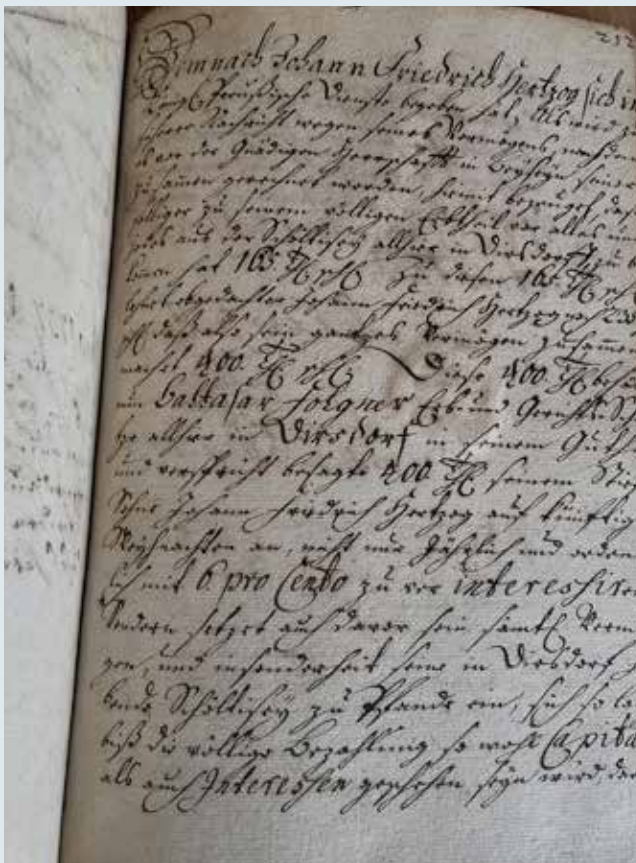 232
Demnach Johann Friedrich Hertzog sich in
Königl. Preußische Dienste begeben hat, Als wird zu
sicherer Nachricht wegen seines Vermögens, nachdem
es vor der Gnädigen Herrschafft in Beyseyn seiner
zusammen gerechnet worden, hiermit bezeuget, daß
völliger zu seinem völligen Erbtheil vor alles und
jedes aus der Scholtisey allhier in Dirsdorff zu
kommen hat 165 Zu diesen 165
obgedachter Johann Friedrich Hertzog noch
daß also sein gantzes Vermögen zusammen
macht 400 Diese 400
nun Baltasar Folgner Erb und Gerichts
allhier in Dirsdorf in seinem Guth
und verspricht besagte 400 seinem Stief
Sohne Johann Friedrich Hertzog auf künftig
Weyhnachten an, nicht nur Jährlich und orden
lich mit 6 pro Cento zu ver interessiren
sondern setzet auch davor sein sämtl. Vermö
gen, und insonderheit seine in Dirsdorf
bende Scholtisey zu Pfande ein, sich so la
biß die völlige Bezahlung so wohl Capita
als auch Interessen geschehen seyn wird, de